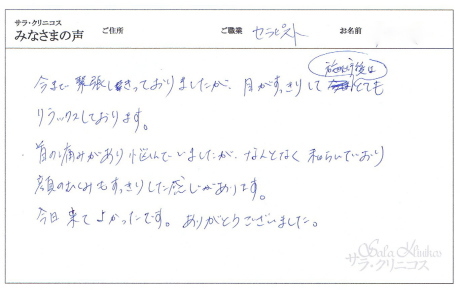 サラ・クリニコス
みなさまの声
ご住所
ご職業 セラピスト
お名前
施術後は
今まで緊張しきっておりましたが、目がすっきりしてとても
リラックスしております。
首の痛みがあり悩んでいましたが、なんとなく和らいでおり
顔のむくみもすっきりした感じがあります。
今日来てよかったです。ありがとうございました。
Sala Klinikos
サラ・クリニコス